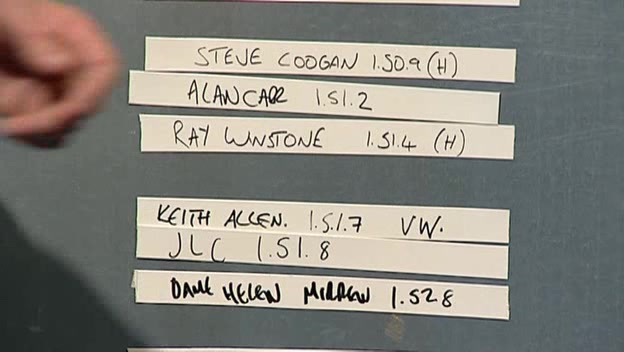 STEVE COOGAN 1.50.9 (H)
ALAN CARR 1.51.2
RAY WINSTONE 1.51.4 (H)
KEITH ALLEN. 1.51.7 VW.
JLC 1.51.8
DAME HELEN MIRREN 1.52.8